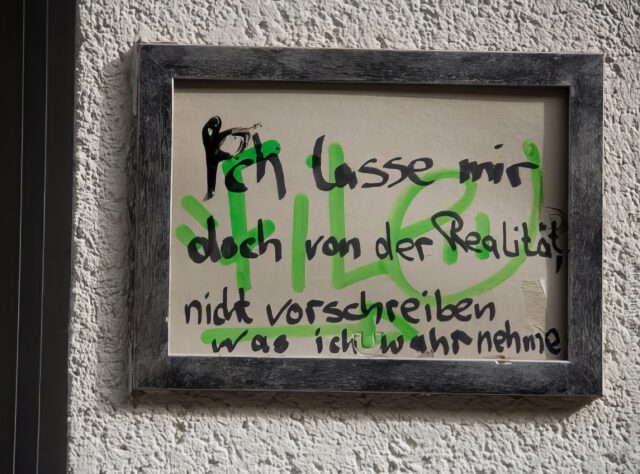 Ich lasse mir
doch von der Realität,
nicht vorschreiben
was ich wahrnehme